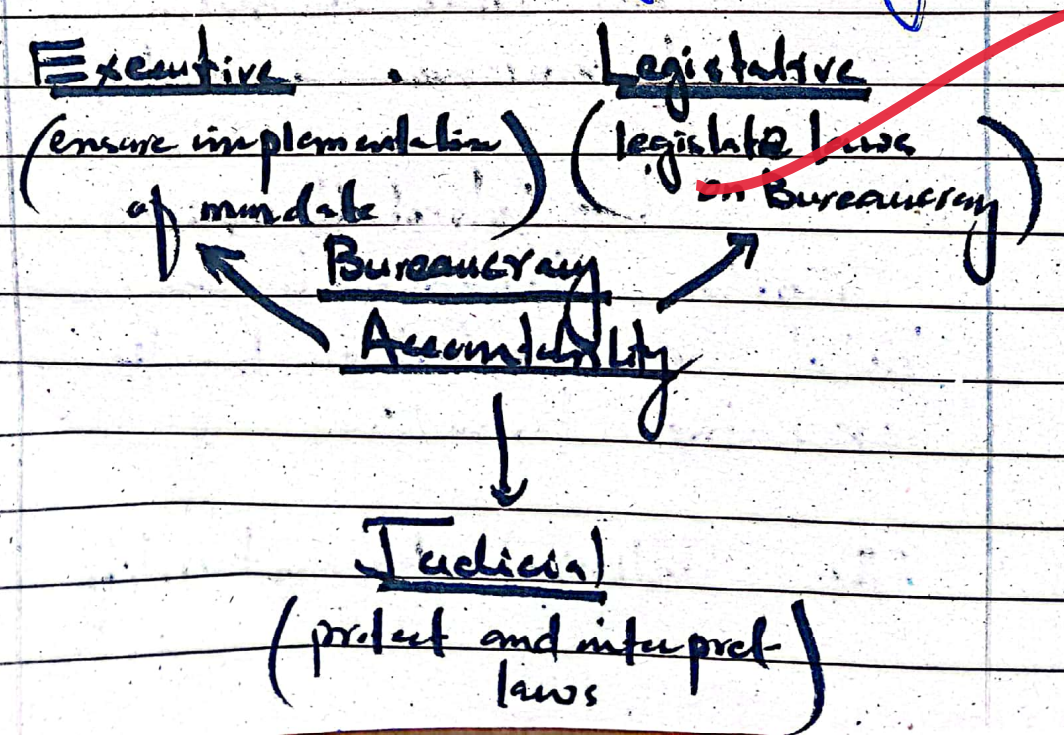 Executive
Legislative
(ensure implementation
of mandate)
(legislate laws
on Bureaucracy)
Bureaucracy
Accountability
Judicial
(protect and interpret
laws)